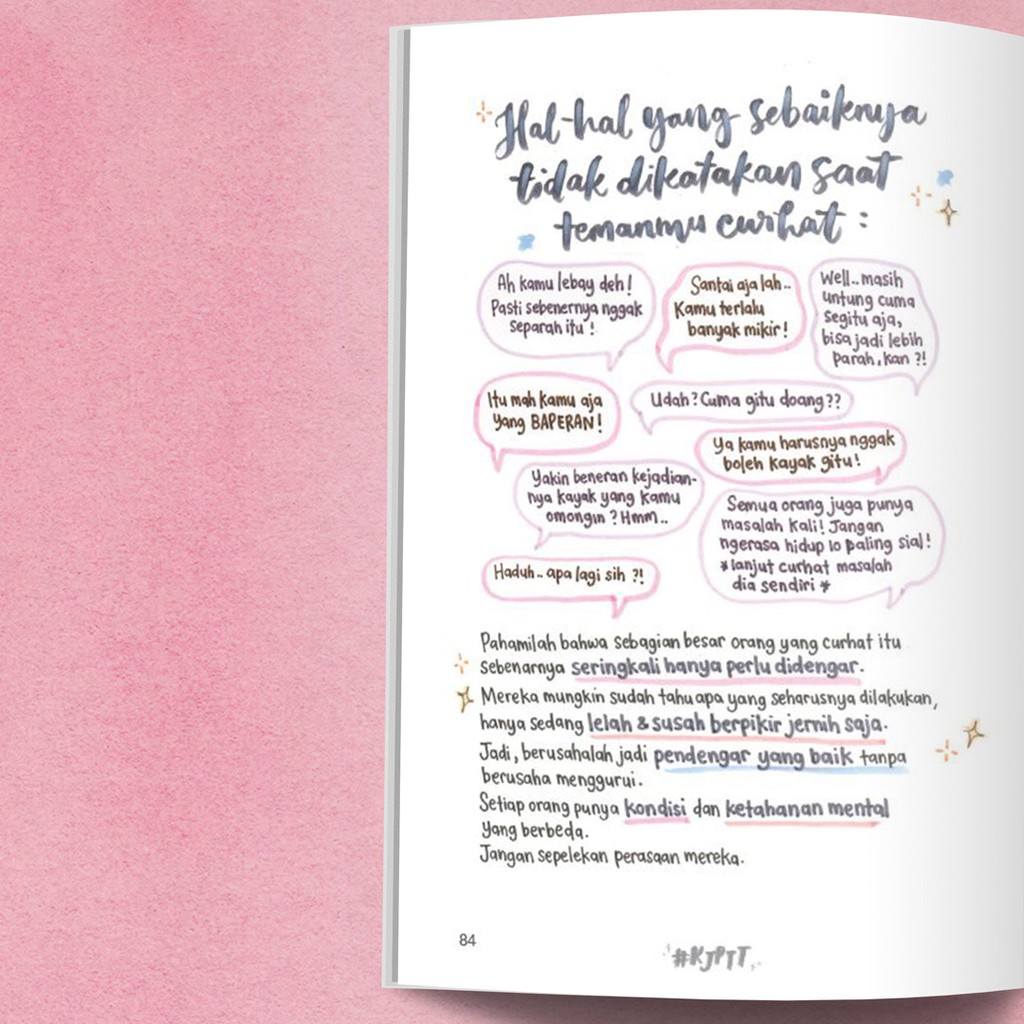 Hal-hal yang sebaiknya
tidak dikatakan saat
temanmu curhat :
Ah kamu lebay deh!
Pasti sebenernya nggak
separah itu!
Santai aja lah..
Kamu terlalu
banyak mikir!
Well.. masih
untung cuma
segitu aja,
bisa jadi lebih
parah, kan ?!
Itu mah kamu aja
yang BAPERAN!
Udah? Cuma gitu doang??
Ya kamu harusnya nggak
boleh kayak gitu!
Yakin beneran kejadian-
nya kayak yang kamu
omongin? Hmm..
Semua orang juga punya
masalah kali! Jangan
ngerasa hidup lo paling sial!
*lanjut curhat masalah
dia sendiri*
Haduh.. apa lagi sih ?!
Pahamilah bahwa sebagian besar orang yang curhat itu
sebenarnya seringkali hanya perlu didengar.
Mereka mungkin sudah tahu apa yang seharusnya dilakukan,
hanya sedang lelah & susah berpikir jernih saja.
Jadi, berusahalah jadi pendengar yang baik tanpa
berusaha menggurui.
Setiap orang punya kondisi dan ketahanan mental
yang berbeda.
Jangan sepelekan perasaan mereka.
84
#KJPTT